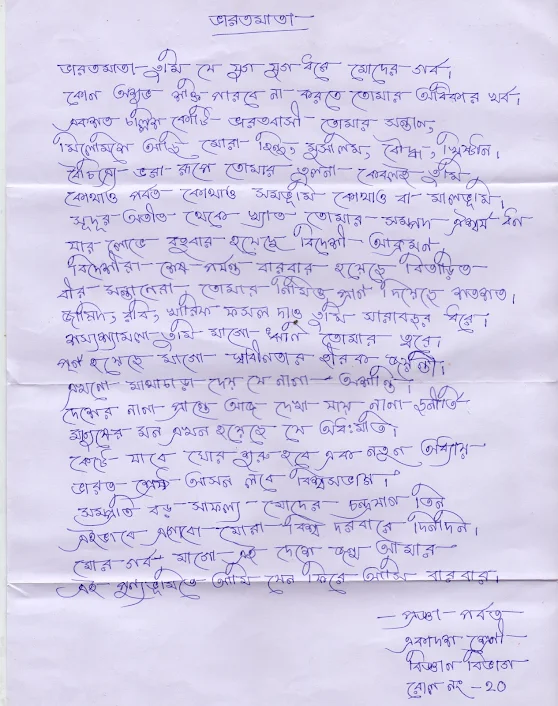 ভারতমাতা
ভারতমাতা তুমি যে যুগ যুগ ধরে মোদের গর্ব।
কোন অশুভ শক্তি পারবে না করতে তোমার অধিকার খর্ব।
একশত চল্লিশ কোটি ভারতবাসী তোমার সন্তান,
মিলেমিশে আছি মোরা হিন্দু, মুসলিম, বৌদ্ধ, খ্রিস্টান।
বৈচিত্র্যে ভরা রূপে তোমার তুলনা কেবলই তুমি,
কোথাও পর্বত কোথাও সমভূমি কোথাও বা মালভূমি।
সুদূর অতীত থেকে খ্যাত তোমার সম্পদ ঐশ্বর্য ধন
যার লোভে বহুবার হয়েছে বিদেশী আক্রমন।
বিদেশীরা শেষ পর্যন্ত বারবার হয়েছে বিতাড়িত
বীর সন্তানেরা তোমার নিমিত্ত প্রাণ দিয়েছে শতশত।
জায়িদ, রবি, খারিফ ফসল দাও তুমি সারাবছর ধরে।
শস্যশ্যামলা তুমি মাগো তোমার তরে।
পূর্ণ হয়েছে মাগো স্বাধীনতার হীরক জয়ন্তী।
এখনো মাথাচাড়া দেয় যে নানা অশান্তি।
দেশের নানা প্রান্তে আজ দেখা যায় নানা দুর্নীতি
মানুষের মন এমন হয়েছে যে অধঃমতি।
কেটে যাবে ঘোর শুরু হবে এক নতুন অধ্যায়
ভারত শ্রেষ্ঠ আসন লবে বিশ্বসভায়।
সম্প্রতি বড় সাফল্য মোদের চন্দ্রযান তিন
এইভাবে এগোবো মোরা বিশ্ব দরবারে দিনদিন।
মোর গর্ব মাগো এই দেশে জন্ম আমার
এই পুন্যভূমিতে আমি যেন ফিরে আসি বারবার।
— পর্বত
একাদশ শ্রেণী
বিজ্ঞান বিভাগ
রোল নং - ২০